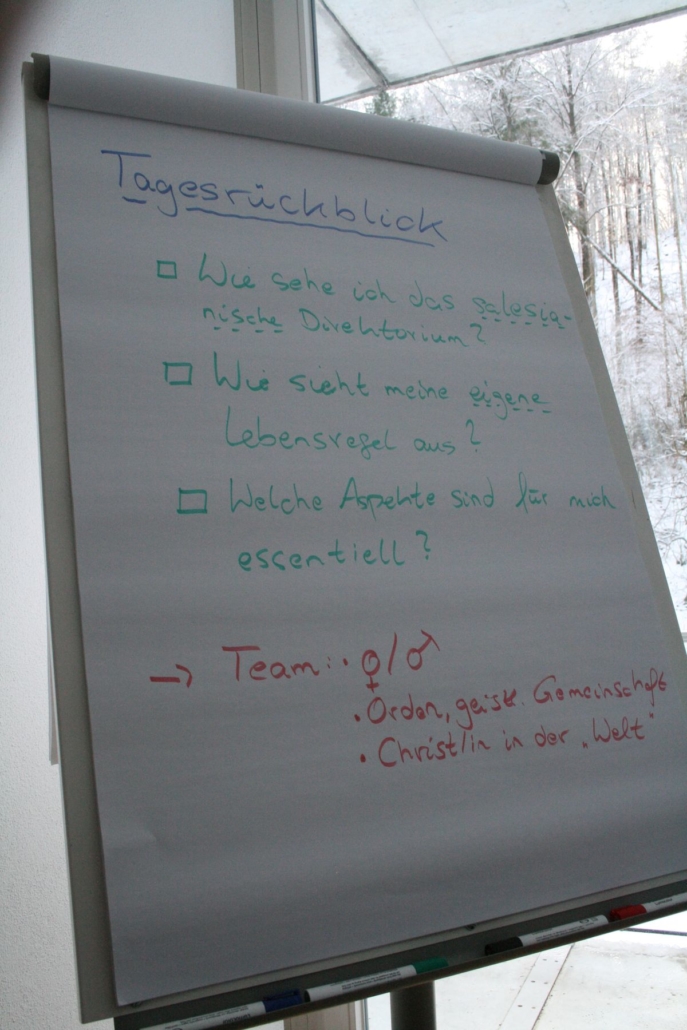 Tagesrückblick
Wie sehe ich das salesia-
nische Direktorium?
Wie sieht meine eigene
Lebensregel aus?
Welche Aspekte sind für mich
essentiell?
→ Team: • ♀/♂
• Orden, geistl. Gemeinschaft
• Christ/in in der „Welt“